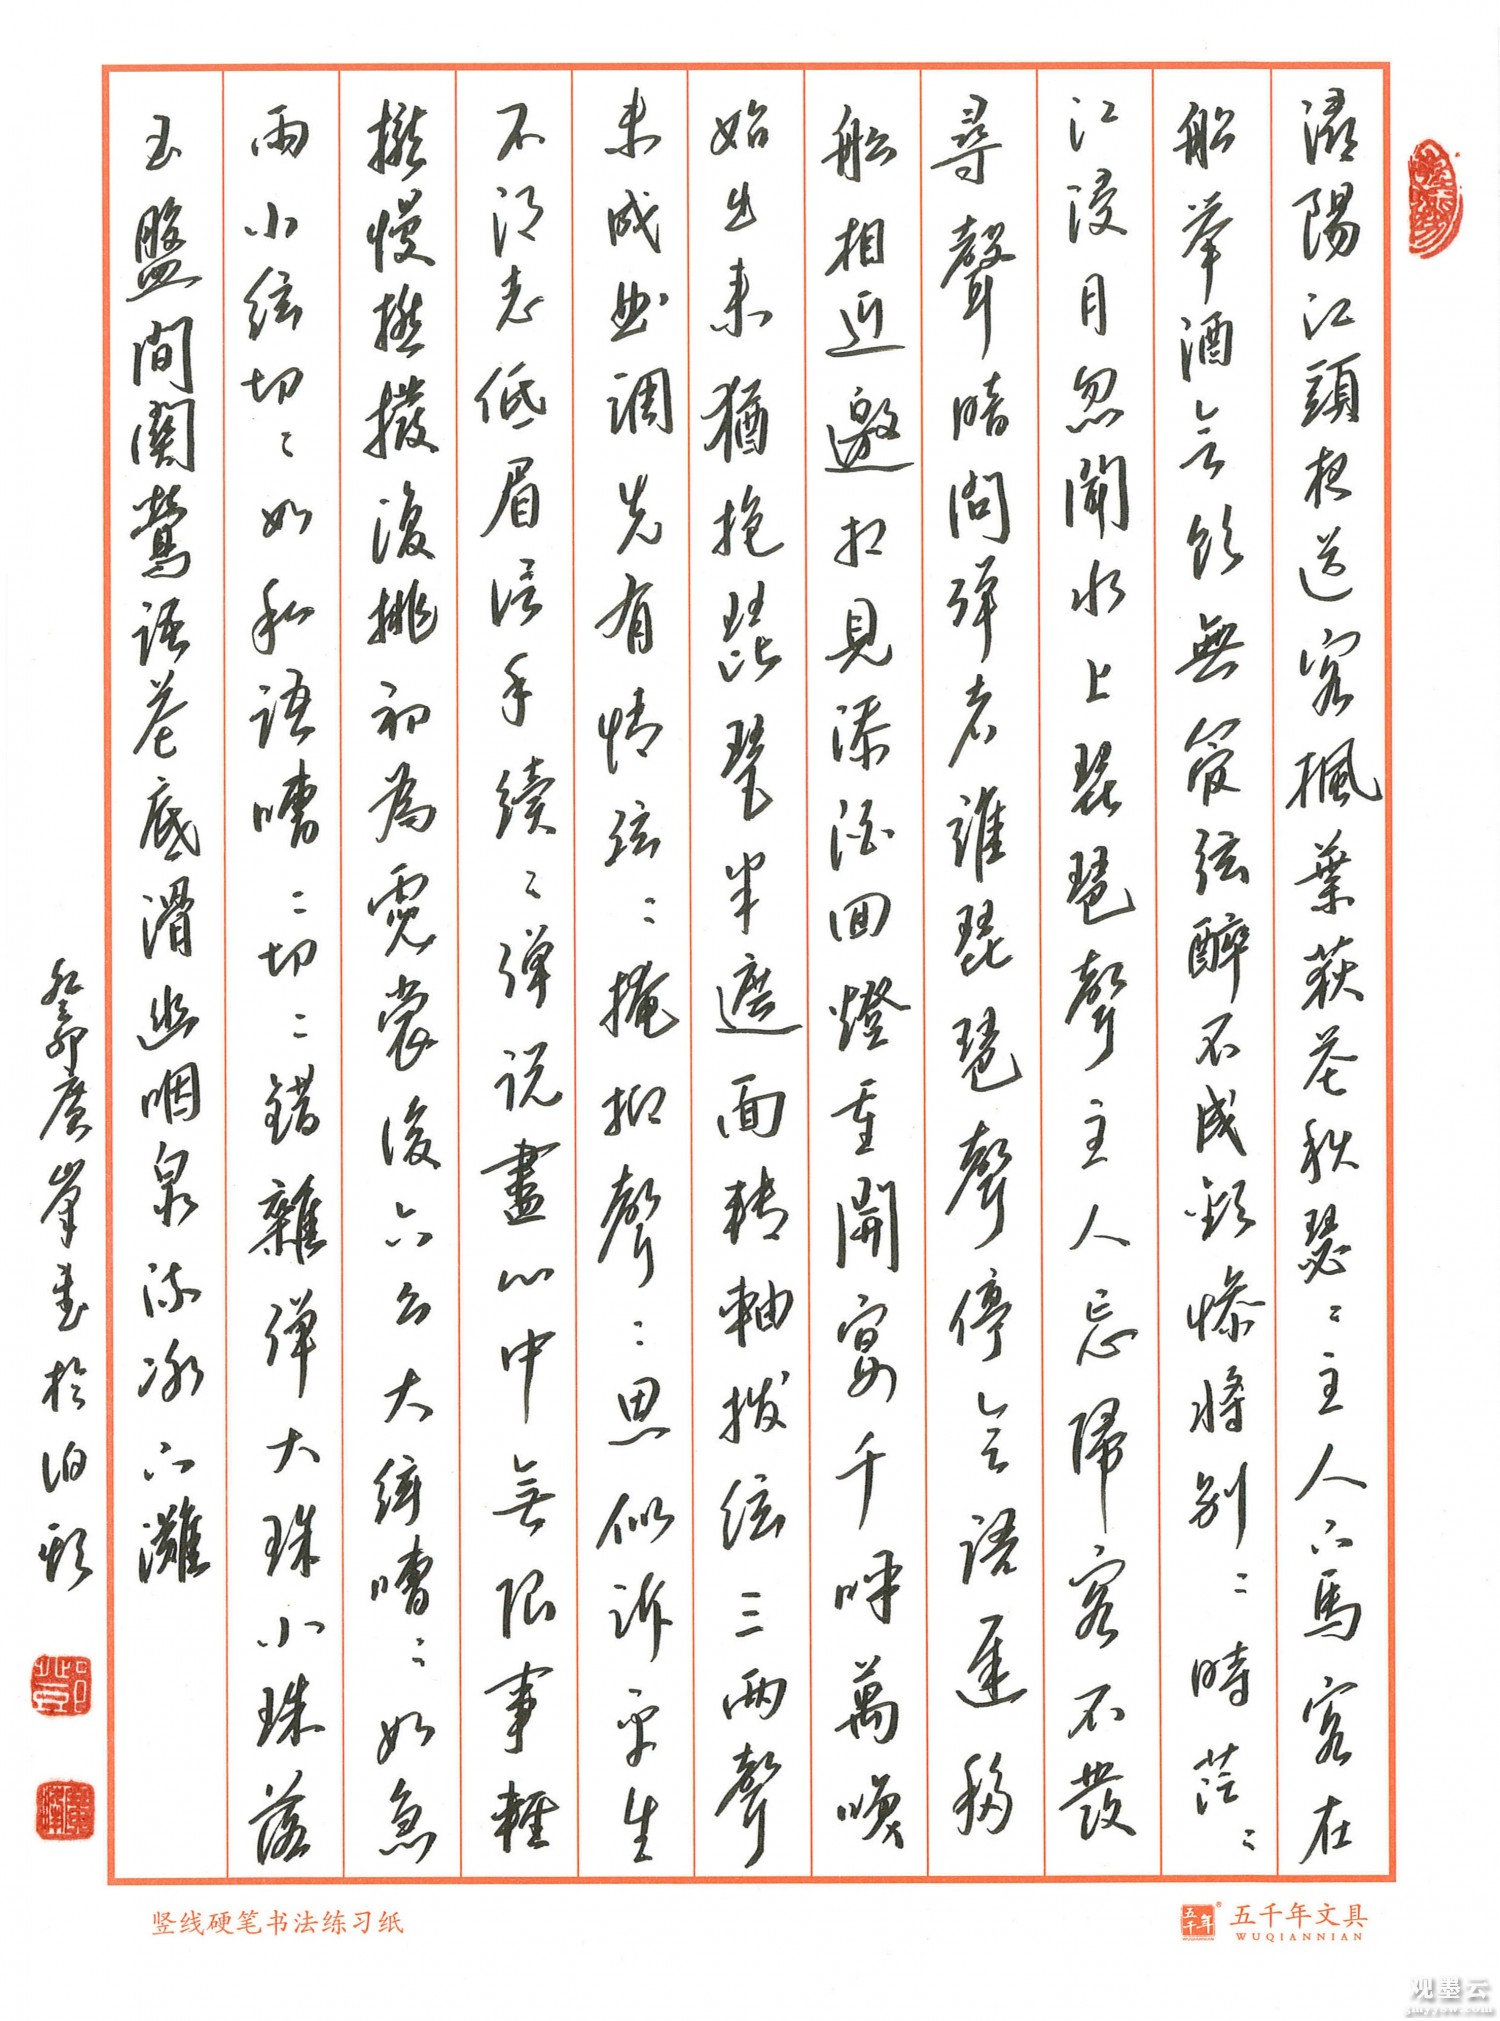 潯陽江頭夜送客楓葉荻花秋瑟〻主人下馬客在
船舉酒欲飲無管弦醉不成歡慘將別〻時茫〻
江浸月忽聞水上琵琶聲主人忘歸客不發
尋聲暗問彈者誰琵琶聲停欲語遲移
船相近邀相見添酒回燈重開宴千呼萬喚
始出來猶抱琵琶半遮面轉軸撥弦三兩聲
未成曲調先有情弦〻掩抑聲〻思似訴平生
不得志低眉信手續〻彈說盡心中無限事輕
攏慢撚撥復挑初為霓裳後六幺大弦嘈〻如急
雨小弦切〻如私語嘈〻切〻錯雜彈大珠小珠落
玉盤間關鶯語花底滑幽咽泉流冰下灘
癸卯廣峯書於泊頭
竖线硬笔书法练习纸
五千年
五千年文具
WUQIANNIAN
观墨云
gmyyww.com